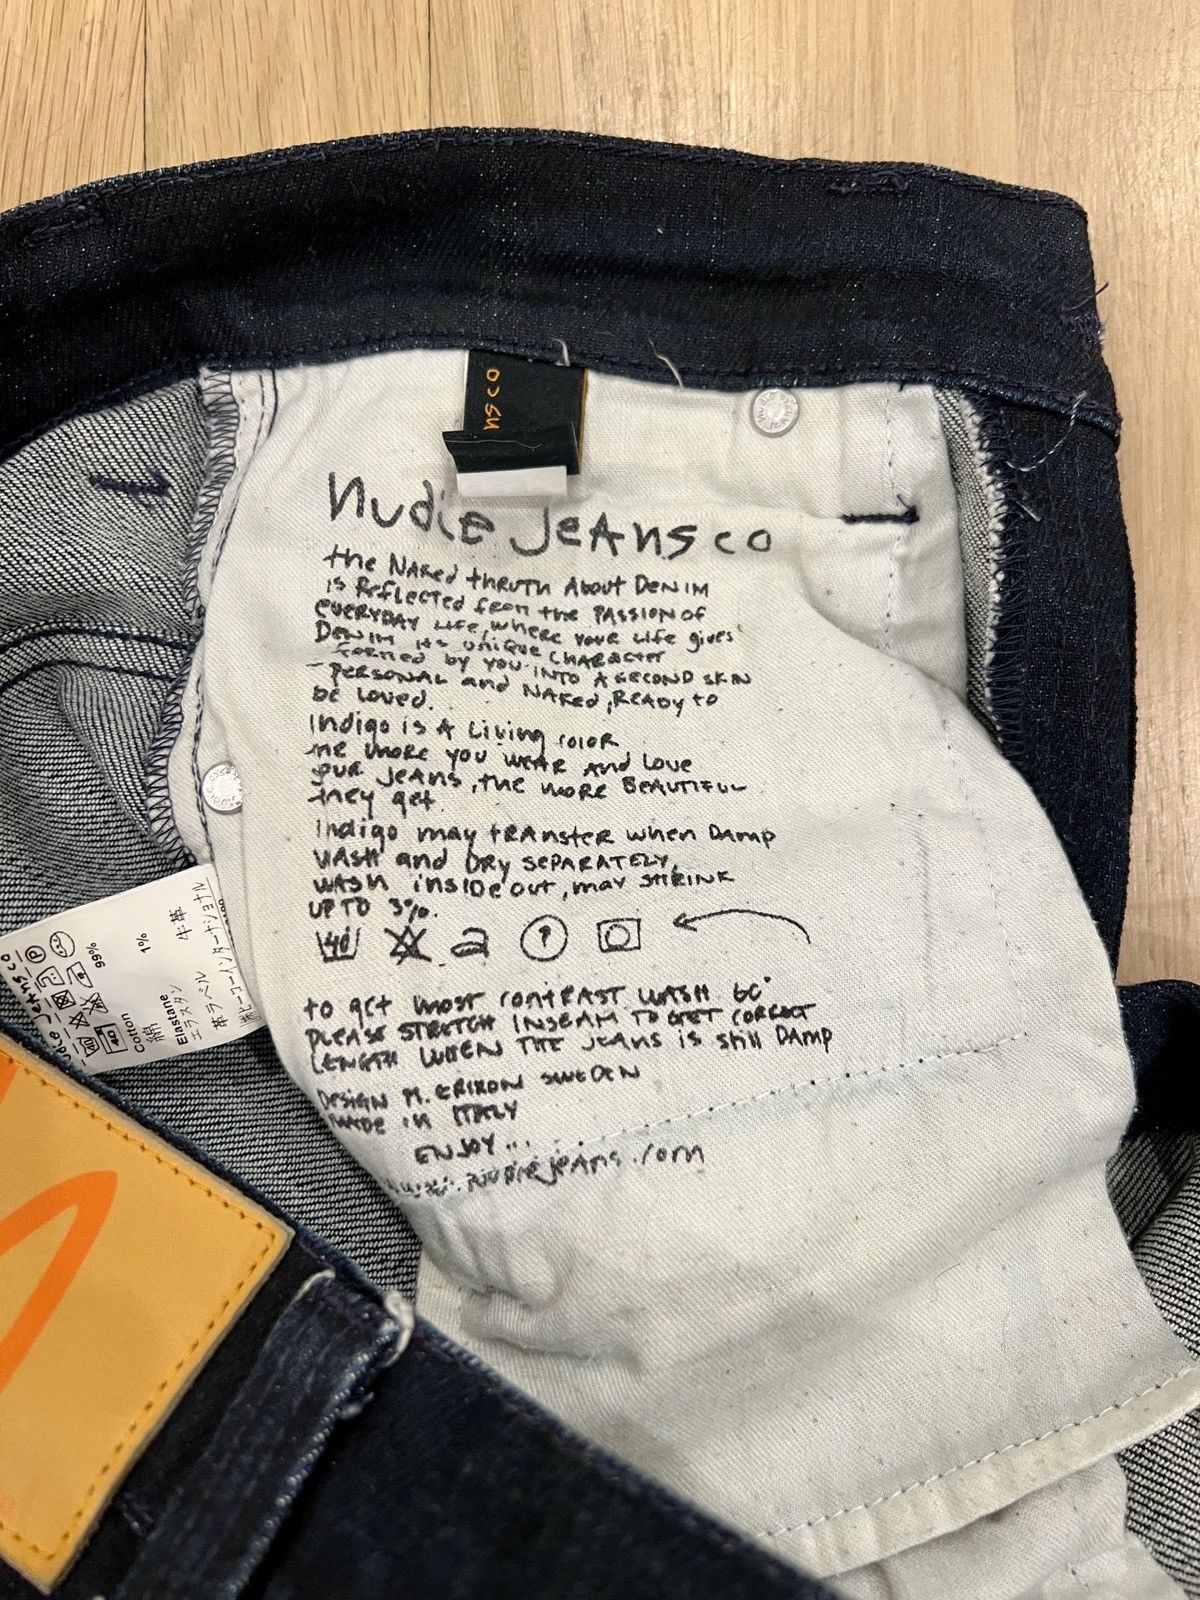 nsco
nudie jeans co
the NAKED thRUTH About DENIM
is Reflected from the PASSION OF
EVERYDAY LIFE, where your Life gives
DENIM its UNIQUE CHARACTER
- formed by you INTO A SECOND SKIN
- PERSONAL and NAKED, READY to
be loved.
Indigo is A Living COLOR
the more you WEAR AND Love
your JEANS, the more BEAUTIFUL
they get.
Indigo may tRANsfer when Damp
WASH and DRY SEPARATELY,
WASH inside out, may SHRINK
UP TO 3%.
40
to get most CONTRAST WASH 60°
PLEASE STRETCH INSEAM TO GET CORRECT
LENGTH WHEN THE JEANS is still DAMP
Design M. ERIXON SWEDEN
MADE in ITALY
ENJOY...
www.nudiejeans.com
nudie jeans co
40
Cotton 99%
綿
Elastane 1%
エラスタン
革ラベル 牛革